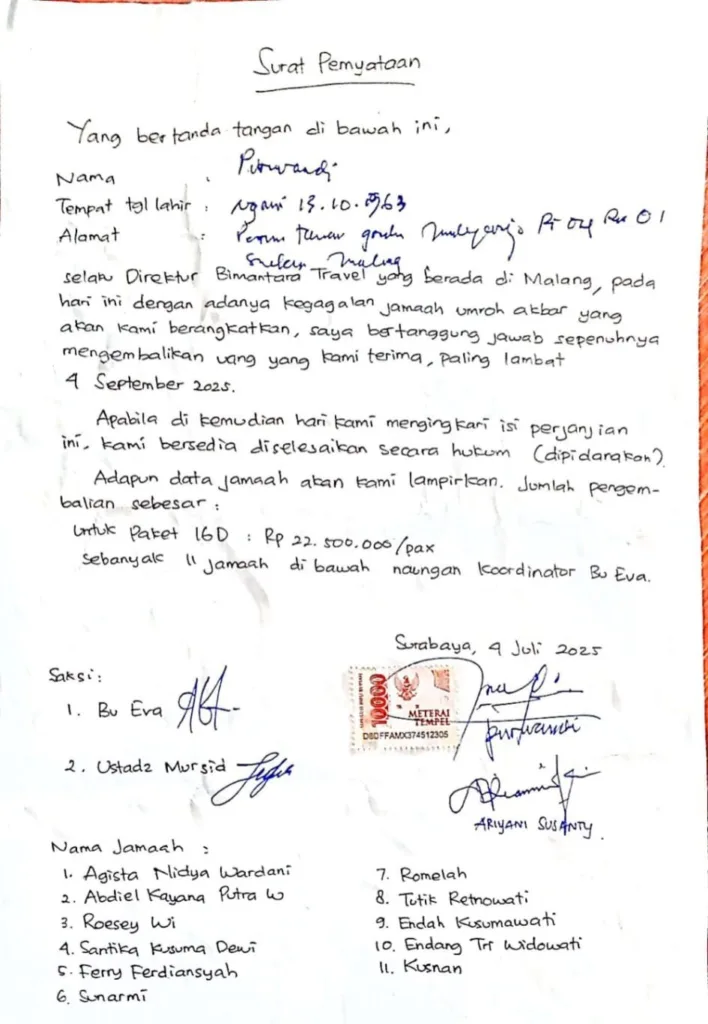 Surat Pernyataan
Yang bertanda tangan di bawah ini,
Nama : Purwandi
Tempat tgl lahir : Ngawi 13.10.1963
Alamat : Perum Rt 04 Rw 01
Malang
selaku Direktur Bimantara Travel yang berada di Malang, pada
hari ini dengan adanya kegagalan jamaah umroh akbar yang
akan kami berangkatkan, saya bertanggung jawab sepenuhnya
mengembalikan uang yang kami terima, paling lambat
4 September 2025.
Apabila di kemudian hari kami mengingkari isi perjanjian
ini, kami bersedia diselesaikan secara hukum (dipidanakan).
Adapun data jamaah akan kami lampirkan. Jumlah pengem-
balian sebesar :
Untuk Paket 16D : Rp 22.500.000/pax
Sebanyak 11 jamaah di bawah naungan Koordinator Bu Eva.
Surabaya, 4 Juli 2025
Saksi :
1. Bu Eva
2. Ustadz Mursid
10000
METERAI
TEMPEL
D8DFFAMX374512305
purwandi
ARIYANI SUSANTY
Nama Jamaah :
1. Agista Nidya Wardani
2. Abdiel Kayana Putra W
3. Roesey Wi
4. Santika Kusuma Dewi
5. Ferry Ferdiansyah
6. Sunarmi
7. Romelah
8. Tutik Retnowati
9. Endah Kusumawati
10. Endang Tri Widowati
11. Kusnan